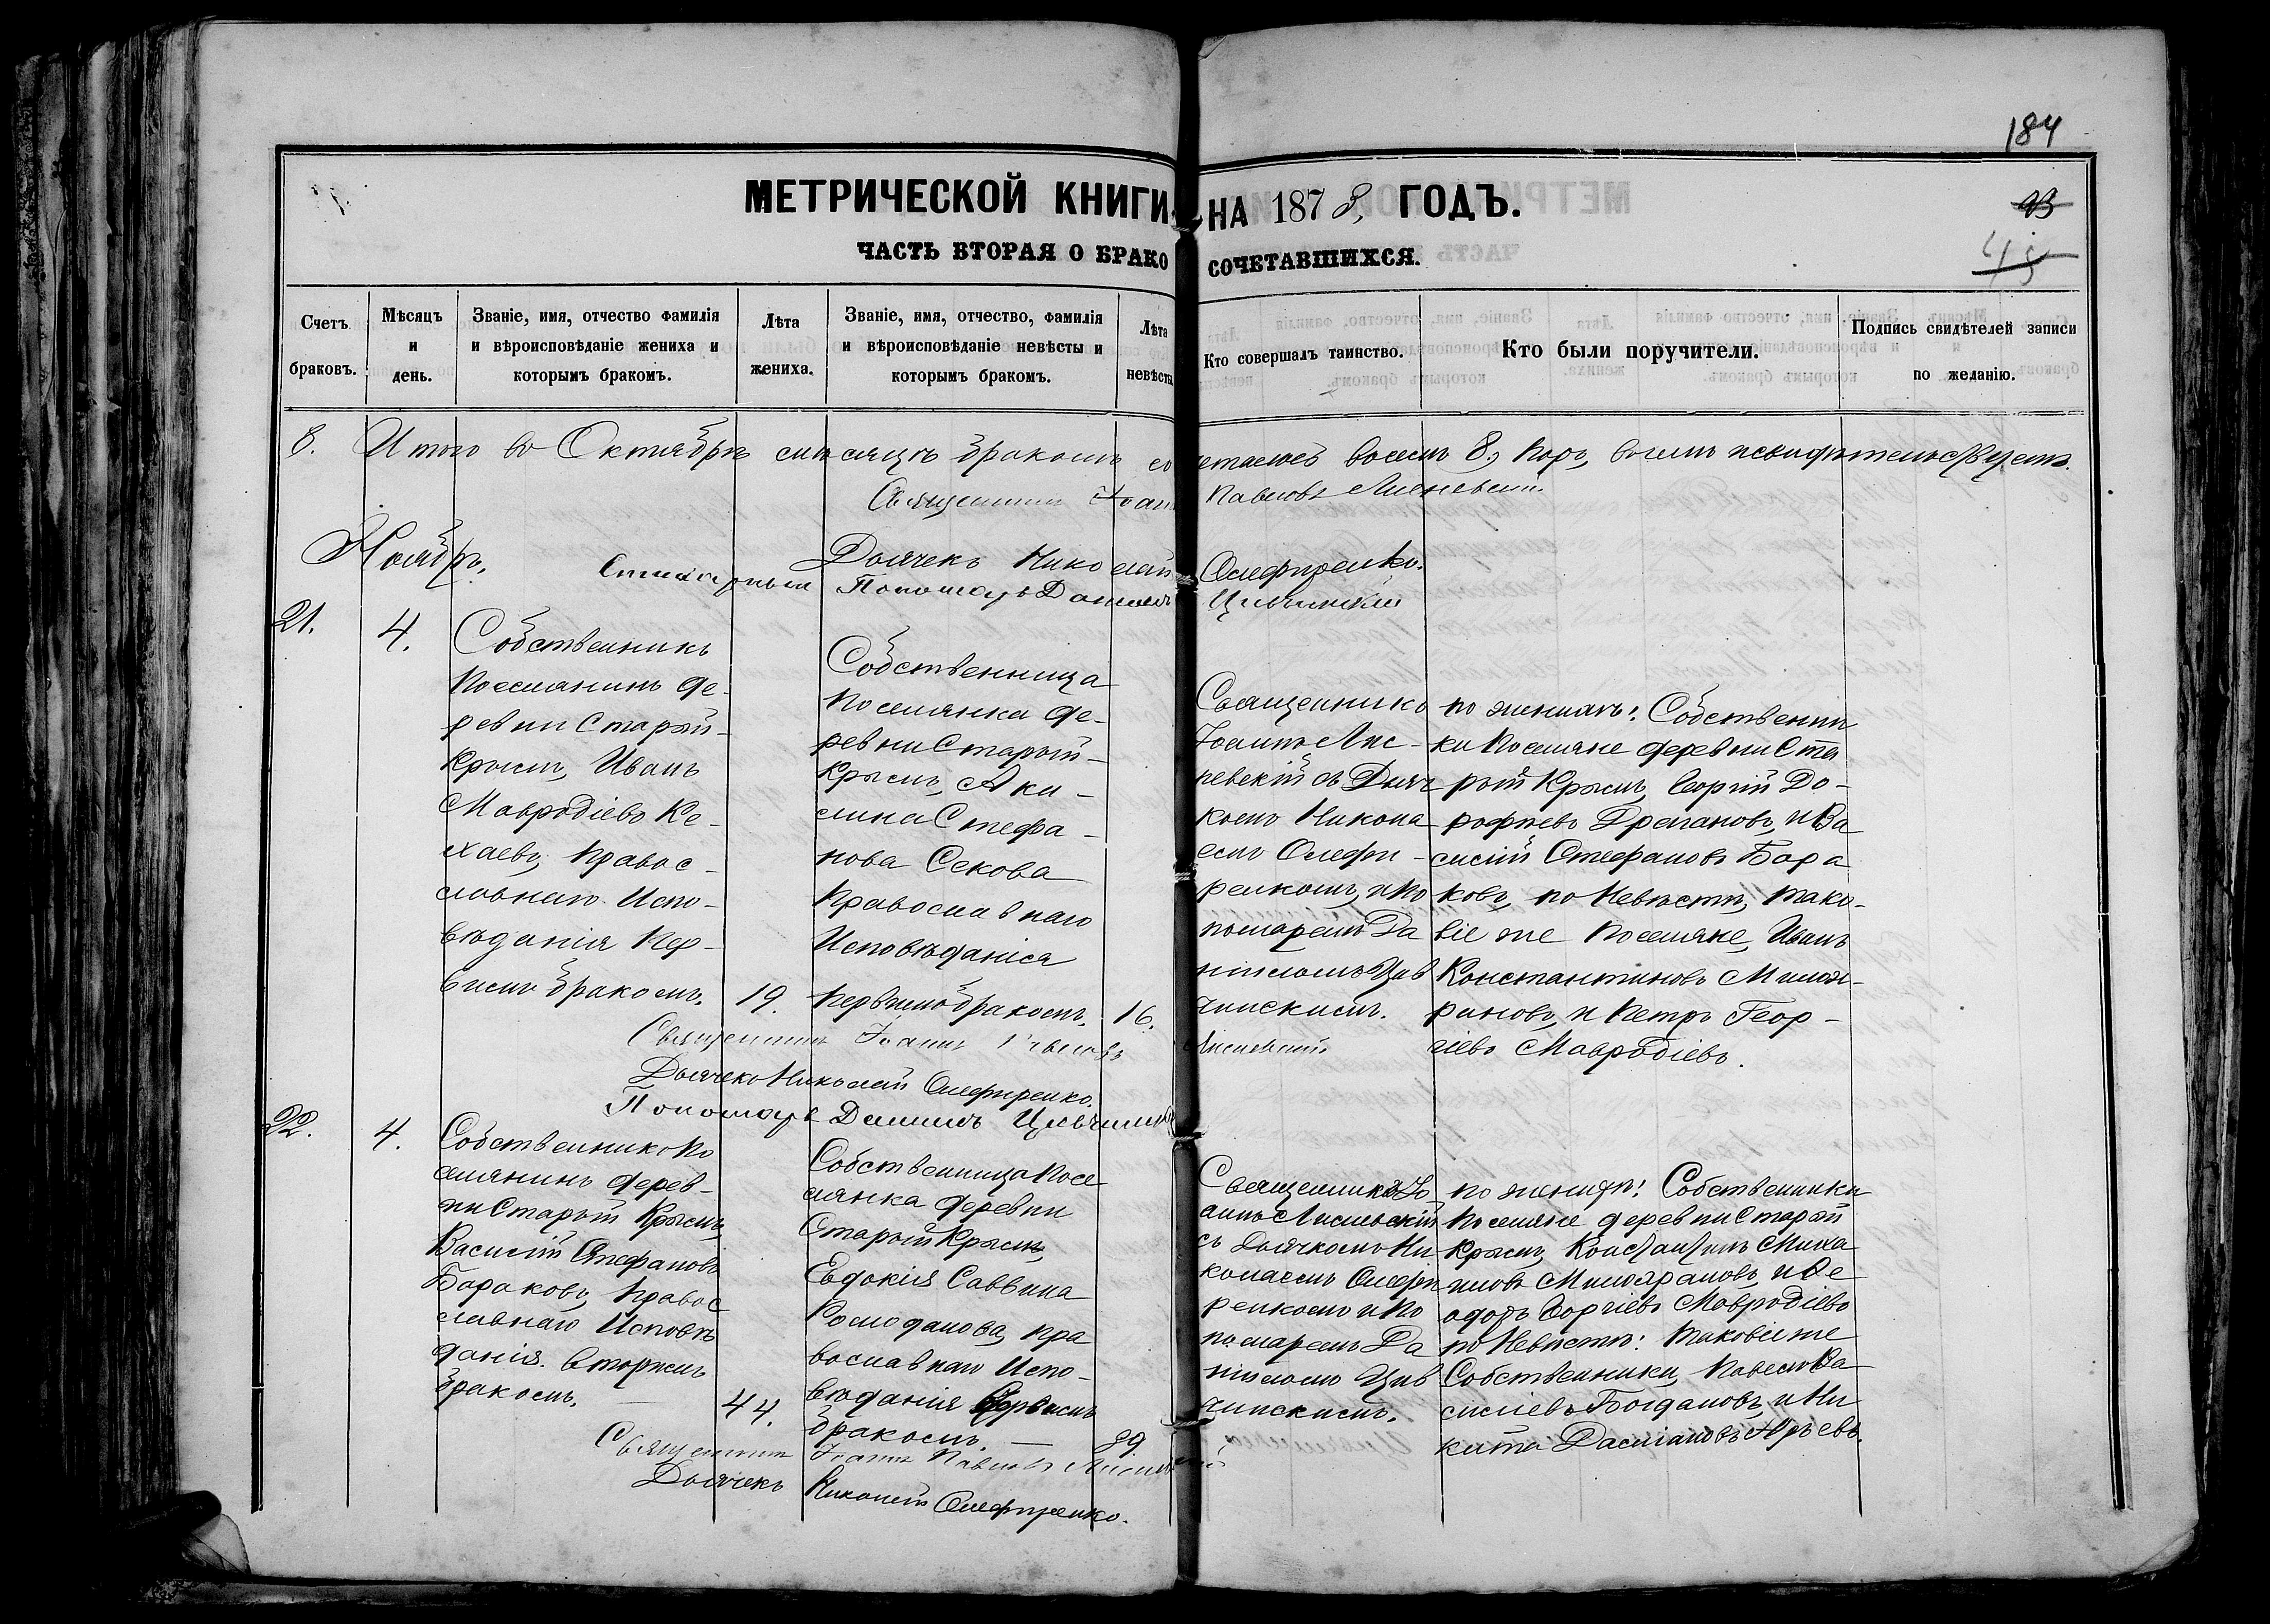 184
МЕТРИЧЕСКОЙ КНИГИ НА 1873, ГОДЪ.
93
45
ЧАСТЬ ВТОРАЯ О БРАКОСОЧЕТАВШИХСЯ.
Счетъ браковъ.
Мѣсяцъ и день.
Званіе, имя, отчество фамилія и вѣроисповѣданіе жениха и которымъ бракомъ.
Лѣта жениха.
Званіе, имя, отчество, фамилія и вѣроисповѣданіе невѣсты и которымъ бракомъ.
Лѣта невѣсты
Кто совершалъ таинство.
Кто были поручители.
Подпись свидѣтелей записи по желанію.
8. Итого во Октябрѣ мѣсяцѣ бракомъ сочеталось восемь 8, паръ, восемь
Священникъ Іоаннъ Павловъ Лисневскій
Ноябрь.
Дьячекъ Николай Олефиренко.
Стихарный Пономарь Даніилъ Цивчинскій
21.
4.
Собственникъ
Поселянинъ де-
ревни Старый-
Крымъ, Иванъ
Мавродіевъ Ке-
хаевъ, Правос-
лавнаго Испо-
вѣданія Пер-
вымъ бракомъ.
19.
Собственница
Поселянка де-
ревни Старый-
Крымъ, Аки-
лина Стефа-
нова Секова
Православнаго
Исповѣданія
первымъ бракомъ.
16.
Священникъ
Іоаннъ Лис-
невскій съ Дьяч
комъ Никола
емъ Олефи-
ренкомъ, и По
номаремъ Да
ніиломъ Цив
чинскимъ.
по женихѣ: Собственни
ки Поселяне деревни Ста
рый Крымъ, Георгій До-
рофѣевъ Дремановъ, и Ва
силій Стефановъ Бара
ковъ, по Невѣстѣ, тако-
віе же Поселяне, Иванъ
Константиновъ Миляв-
рановъ, и Петръ Геор-
гіевъ Мавродіевъ.
Священникъ Іоаннъ Павловъ Лисневскій
Дьячекъ Николай Олефиренко.
Пономарь Даніилъ Цивчинскій
22.
4.
Собственникъ По
селянинъ дерев-
ни Старый Крымъ,
Василій Стефановъ
Бараковъ, Правос
лавнаго Исповѣ
данія. Вторымъ
бракомъ.
44.
Собственница Посе
лянка деревни
Старый Крымъ,
Евдокія Саввина
Комоданова, Пра
вославнаго Испо-
вѣданія Первымъ
бракомъ.
39.
Священникъ Іо
аннъ Лисневскій
съ Дьячкомъ Ни
колаемъ Олефи
ренкомъ и По
номаремъ Да
ніиломъ Цив
чинскимъ.
по женихѣ: Собственники
Поселяне деревни Старый
Крымъ, Константинъ Миха
иловъ Милорановъ, и Ѳе
одоръ Георгіевъ Мавродіевъ
по Невѣстѣ: таковіе же
Собственники, Павелъ Ва
силіевъ Богдановъ, и Ни
кита Даміановъ
Священникъ Іоаннъ Павловъ Лисневскій
Дьячекъ Николай Олефиренко.